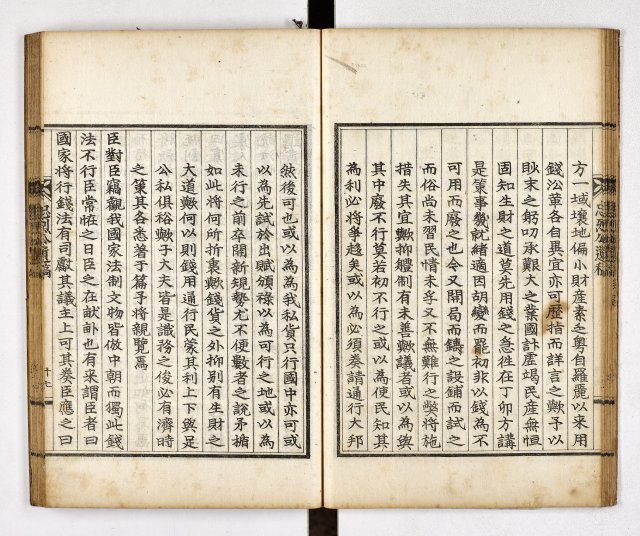 方一域壤地偏小財産素乏粤自羅麗以來用
錢㳂革各自異宜亦可歷指而詳言之歟予以
眇末之躬叨承艱大之業國計虛竭民産無恒
固知生財之道莫先用錢之急徃在丁卯方講
是策事幾就緒適因胡變而罷初非以錢為不
可用而廢之也今又開局而鑄之設鋪而試之
而俗尚未習民情未孚又不無難行之弊將施
措失其宜歟抑軆制有未善歟議者或以為與
其中廢不行莫若初不行之或以為使民知其
為利必將爭趍矣或以為必須奏請通行大邦
然後可也或以為為我私貨只行國中亦可或
以為先試於出賦頒祿以為可行之地或以為
未行之前卒開新規勢尤不便數者之說矛楯
如此將何所折衷歟錢貨之外抑別有生財之
大道歟何以則錢用通行民蒙其利上下與足
公私俱裕歟子大夫皆是識務之俊必有濟時
之策其各悉著于篇予將親覽焉
臣對臣竊觀我國家法制文物皆倣中朝而獨此錢
法不行臣常恠之日臣之在畎畒也有來謂臣者曰
國家將行錢法有司獻其議主上可其奏臣應之曰
忠烈公遺稿
十七